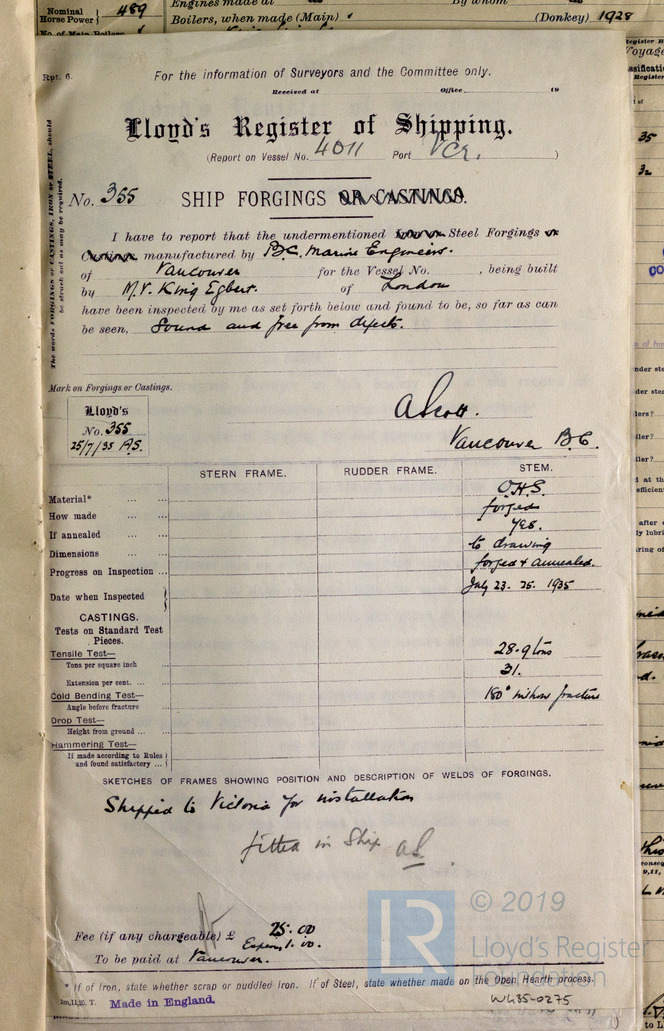 Nominal Horse Power 489
Engines made at
By whom
Boilers, when made (Main)
(Donkey) 1928
No. of Main Boilers
Rpt. 6.
For the information of Surveyors and the Committee only.
Received at Office 19
Lloyd's Register of Shipping.
(Report on Vessel No. 4011 Port Vcr. )
No. 355 SHIP FORGINGS OR CASTINGS.
The words FORGINGS or CASTINGS, IRON or STEEL, should be struck out as may be required.
I have to report that the undermentioned Steel Forgings or
Castings manufactured by B.C. Marine Engineers.
of Vancouver for the Vessel No. , being built
by M.V. King Egbert. of London
have been inspected by me as set forth below and found to be, so far as can
be seen, Sound and free from defects.
Mark on Forgings or Castings.
Lloyd's
No. 355
25/7/35 A.S.
A Scott.
Vancouver B.C.
STERN FRAME. RUDDER FRAME. STEM.
Material* ... ... O.H.S.
How made ... ... forged
If annealed ... ... yes.
Dimensions ... ... to drawing
Progress on Inspection ... forged & annealed.
Date when Inspected July 23. 25. 1935
CASTINGS.
Tests on Standard Test
Pieces.
Tensile Test— 28.9 tons
Tons per square inch ...
Extension per cent. ... ... 31.
Cold Bending Test— 180° without fracture
Angle before fracture ...
Drop Test—
Height from ground ... ...
Hammering Test—
If made according to Rules
and found satisfactory ...
SKETCHES OF FRAMES SHOWING POSITION AND DESCRIPTION OF WELDS OF FORGINGS.
Shipped to Victoria for installation
fitted in Ship AS.
Fee (if any chargeable) £ 25.00
Expens 1.00.
To be paid at Vancouver.
* If of Iron, state whether scrap or puddled Iron. If of Steel, state whether made on the Open Hearth process.
2m,11,25. T. Made in England.
W435-0275
LR © 2019
Lloyd's Register
Foundation